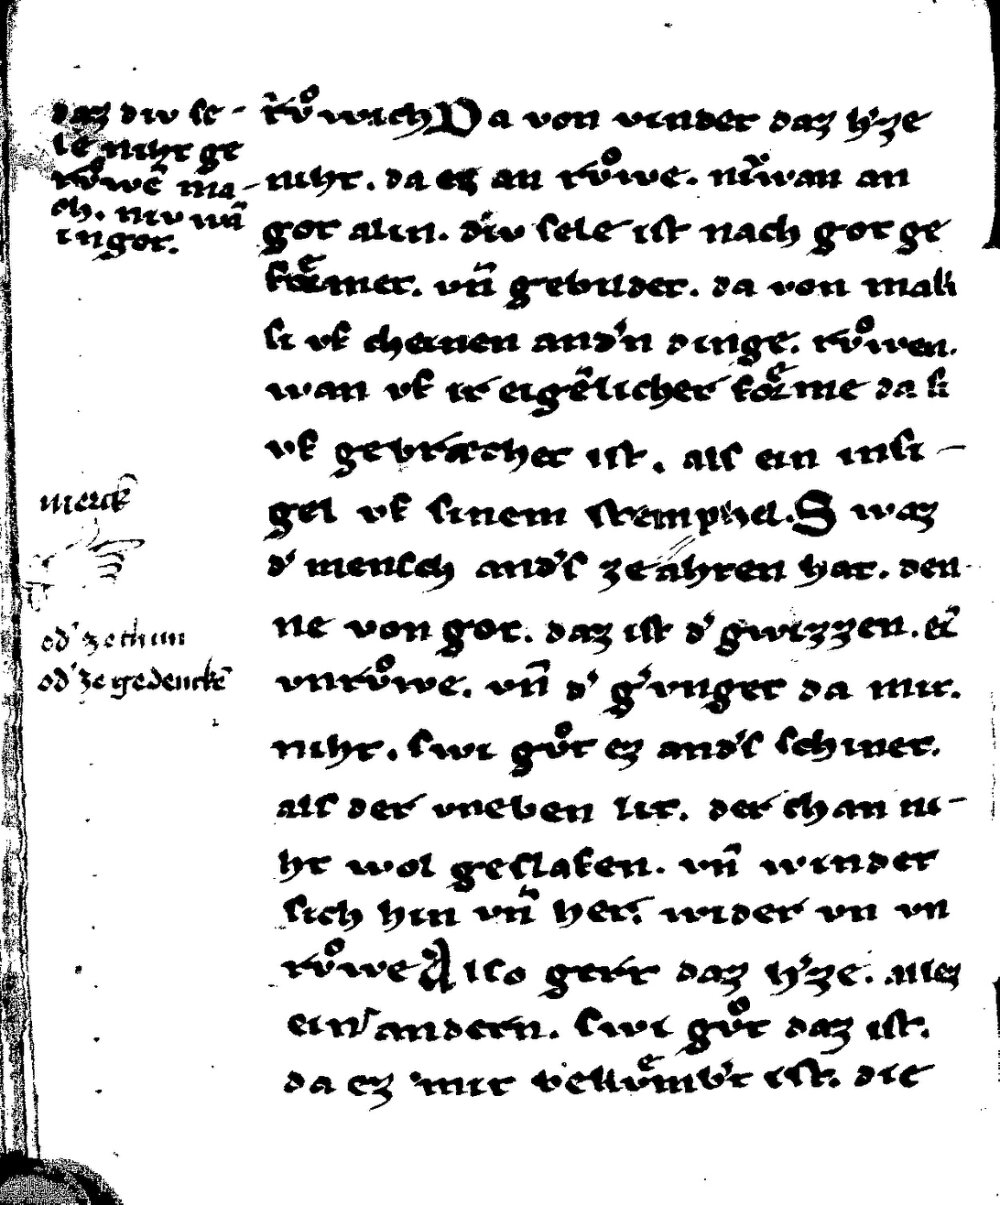 daz div se-
le niht ge
růwē ma-
ch. niv wā
in got.
merck
od' ze thun
od' ze gedenckē
růwich Da von vindet daz h'ze
niht. da ez an růwe. niwan an
got alein. div sele ist nach got ge
formet. vn̄ gebildet. da von mak
si vf cheinen and'n dinge. růwen.
wan vf ir eigēlicher forme da si
vf gebrachet ist. als ein insi-
gel vf sinem stemphel. Swaz
d' mensch and's ze ahten hat. den
ne von got. daz ist d' gwizzen. ein
vnrůwe. vn̄ d' g'vnget da mit.
niht. swi gůt ez and's schinet.
als der vneben lit. der chan ni-
ht wol geslafen. vn̄ windet
sich hin vn̄ her. wider vn vn
růwe Also gert daz h'ze. allez
ein andern. swi gůt daz ist.
da ez mit bekumb't ist. die